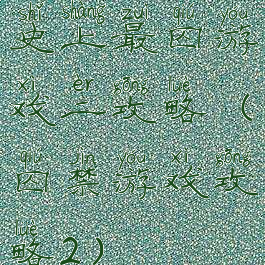 shǐ shàng zuì qiú yóu
史上最囚游
xì èr gōng lüè
戏二攻略(
qiú jìn yóu xì gōng
囚禁游戏攻
lüè
略2)